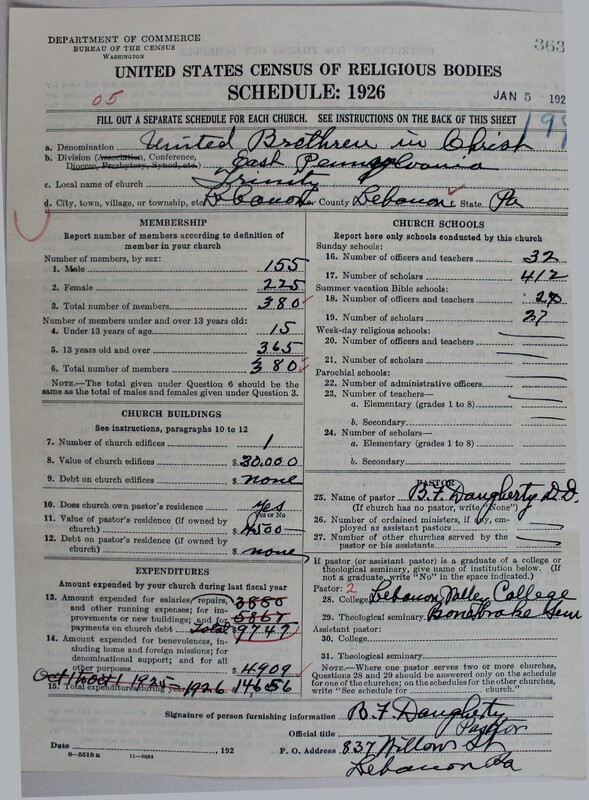 DEPARTMENT OF COMMERCE
BUREAU OF THE CENSUS
WASHINGTON
363
UNITED STATES CENSUS OF RELIGIOUS BODIES
SCHEDULE: 1926
05
JAN 5 192
FILL OUT A SEPARATE SCHEDULE FOR EACH CHURCH. SEE INSTRUCTIONS ON THE BACK OF THIS SHEET
a. Denomination United Brethren in Christ
b. Division (Association, Conference, Diocese, Presbytery, Synod, etc.) East Pennsylvania
c. Local name of church Trinity
d. City, town, village, or township, etc. Lebanon County Lebanon State Pa
MEMBERSHIP
Report number of members according to definition of
member in your church
Number of members, by sex:
1. Male 155
2. Female 225
3. Total number of members 380
Number of members under and over 13 years old:
4. Under 13 years of age 15
5. 13 years old and over 365
6. Total number of members 380
NOTE.—The total given under Question 6 should be
the same as the total of males and females given under Question 3.
CHURCH BUILDINGS
See instructions, paragraphs 10 to 12
7. Number of church edifices 1
8. Value of church edifices $ 30.000
9. Debt on church edifices $ none
10. Does church own pastor's residence yes
Yes or No
11. Value of pastor's residence (if owned by
church) $ 4500
12. Debt on pastor's residence (if owned by
church) $ none
EXPENDITURES
Amount expended by your church during last fiscal year
13. Amount expended for salaries, repairs,
and other running expenses; for im-
provements or new buildings; and for
payments on church debt Total $ 9747
14. Amount expended for benevolences, in-
cluding home and foreign missions; for
denominational support; and for all
other purposes $ 4909
Oct 1 to Oct 1 1925 - 1926
15. Total expenditures during year 14656
CHURCH SCHOOLS
Report here only schools conducted by this church
Sunday schools:
16. Number of officers and teachers 32
17. Number of scholars 412
Summer vacation Bible schools:
18. Number of officers and teachers
19. Number of scholars 27
Week-day religious schools:
20. Number of officers and teachers
21. Number of scholars
Parochial schools:
22. Number of administrative officers
23. Number of teachers—
a. Elementary (grades 1 to 8)
b. Secondary
24. Number of scholars—
a. Elementary (grades 1 to 8)
b. Secondary
PASTOR
25. Name of pastor B. F. Daugherty D.D.
(If church has no pastor, write "None")
26. Number of ordained ministers, if any, em-
ployed as assistant pastors
27. Number of other churches served by the
pastor or his assistants
If pastor (or assistant pastor) is a graduate of a college or
theological seminary, give name of institution below. (If
not a graduate, write "No" in the space indicated.)
Pastor: 2
28. College Lebanon Valley College
29. Theological seminary Bonebrake Sem
Assistant pastor:
30. College
31. Theological seminary
NOTE.—Where one pastor serves two or more churches,
Questions 28 and 29 should be answered only on the schedule
for one of the churches; on the schedules for the other churches,
write "See schedule for church."
Signature of person furnishing information B. F. Daugherty
Official title Pastor
Date , 192 P. O. Address 837 Willow St
8-5518a 11-9084
Lebanon Pa